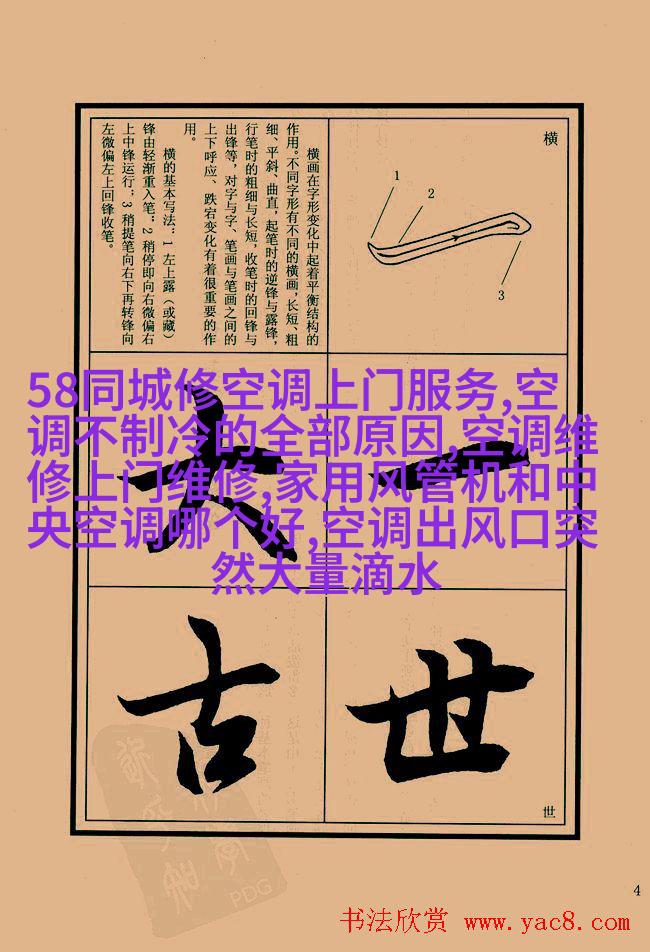 横
1
2
3
横画在字形变化中起着平衡结构的
作用。不同字形有不同的横画，长短、粗
细、平斜、曲直，起笔时的逆锋与露锋，
行笔时的粗细与长短，收笔时的回锋与
出锋等，对字与字、笔画与笔画之间的
上下呼应、跌宕变化有着很重要的作
用。
横的基本写法：1 左上露（或藏）
锋由轻渐重入笔；2 稍停即向右微偏右
上中锋运行；3 稍提笔向右下再转锋向
左微偏左上回锋收笔。
58同城修空调上门服务,空
调不制冷的全部原因,空调维
修上门维修,家用风管机和中
央空调哪个好,空调出风口突
然大量滴水
一
大
世
古
世
PDG
4
书法欣赏 www.yac8.com